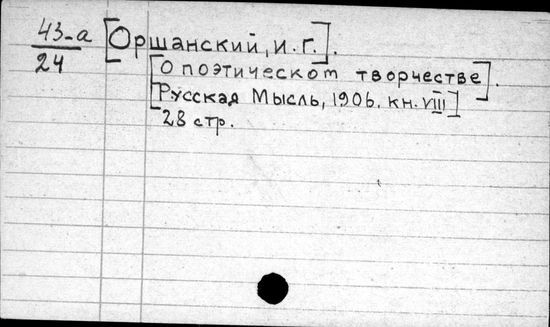 43-а [Оршанский, И. Г.].
24
[О поэтическом творчестве].
[Русская Мысль, 1906. кн. VIII]
28 стр.